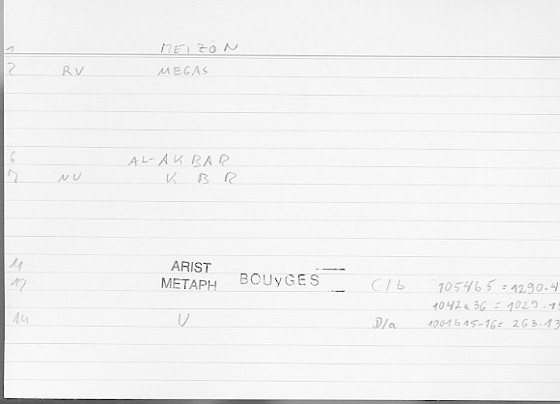 1 MEIZON
2 RV MEGAS
6 AL-AKBAR
7 NV K B R
11 ARIST
12 METAPH BOUyGES C/b 1054b5 = 1290.4
1042a36 = 1029.1
14 V D/a 1001b15-16 = 263.13